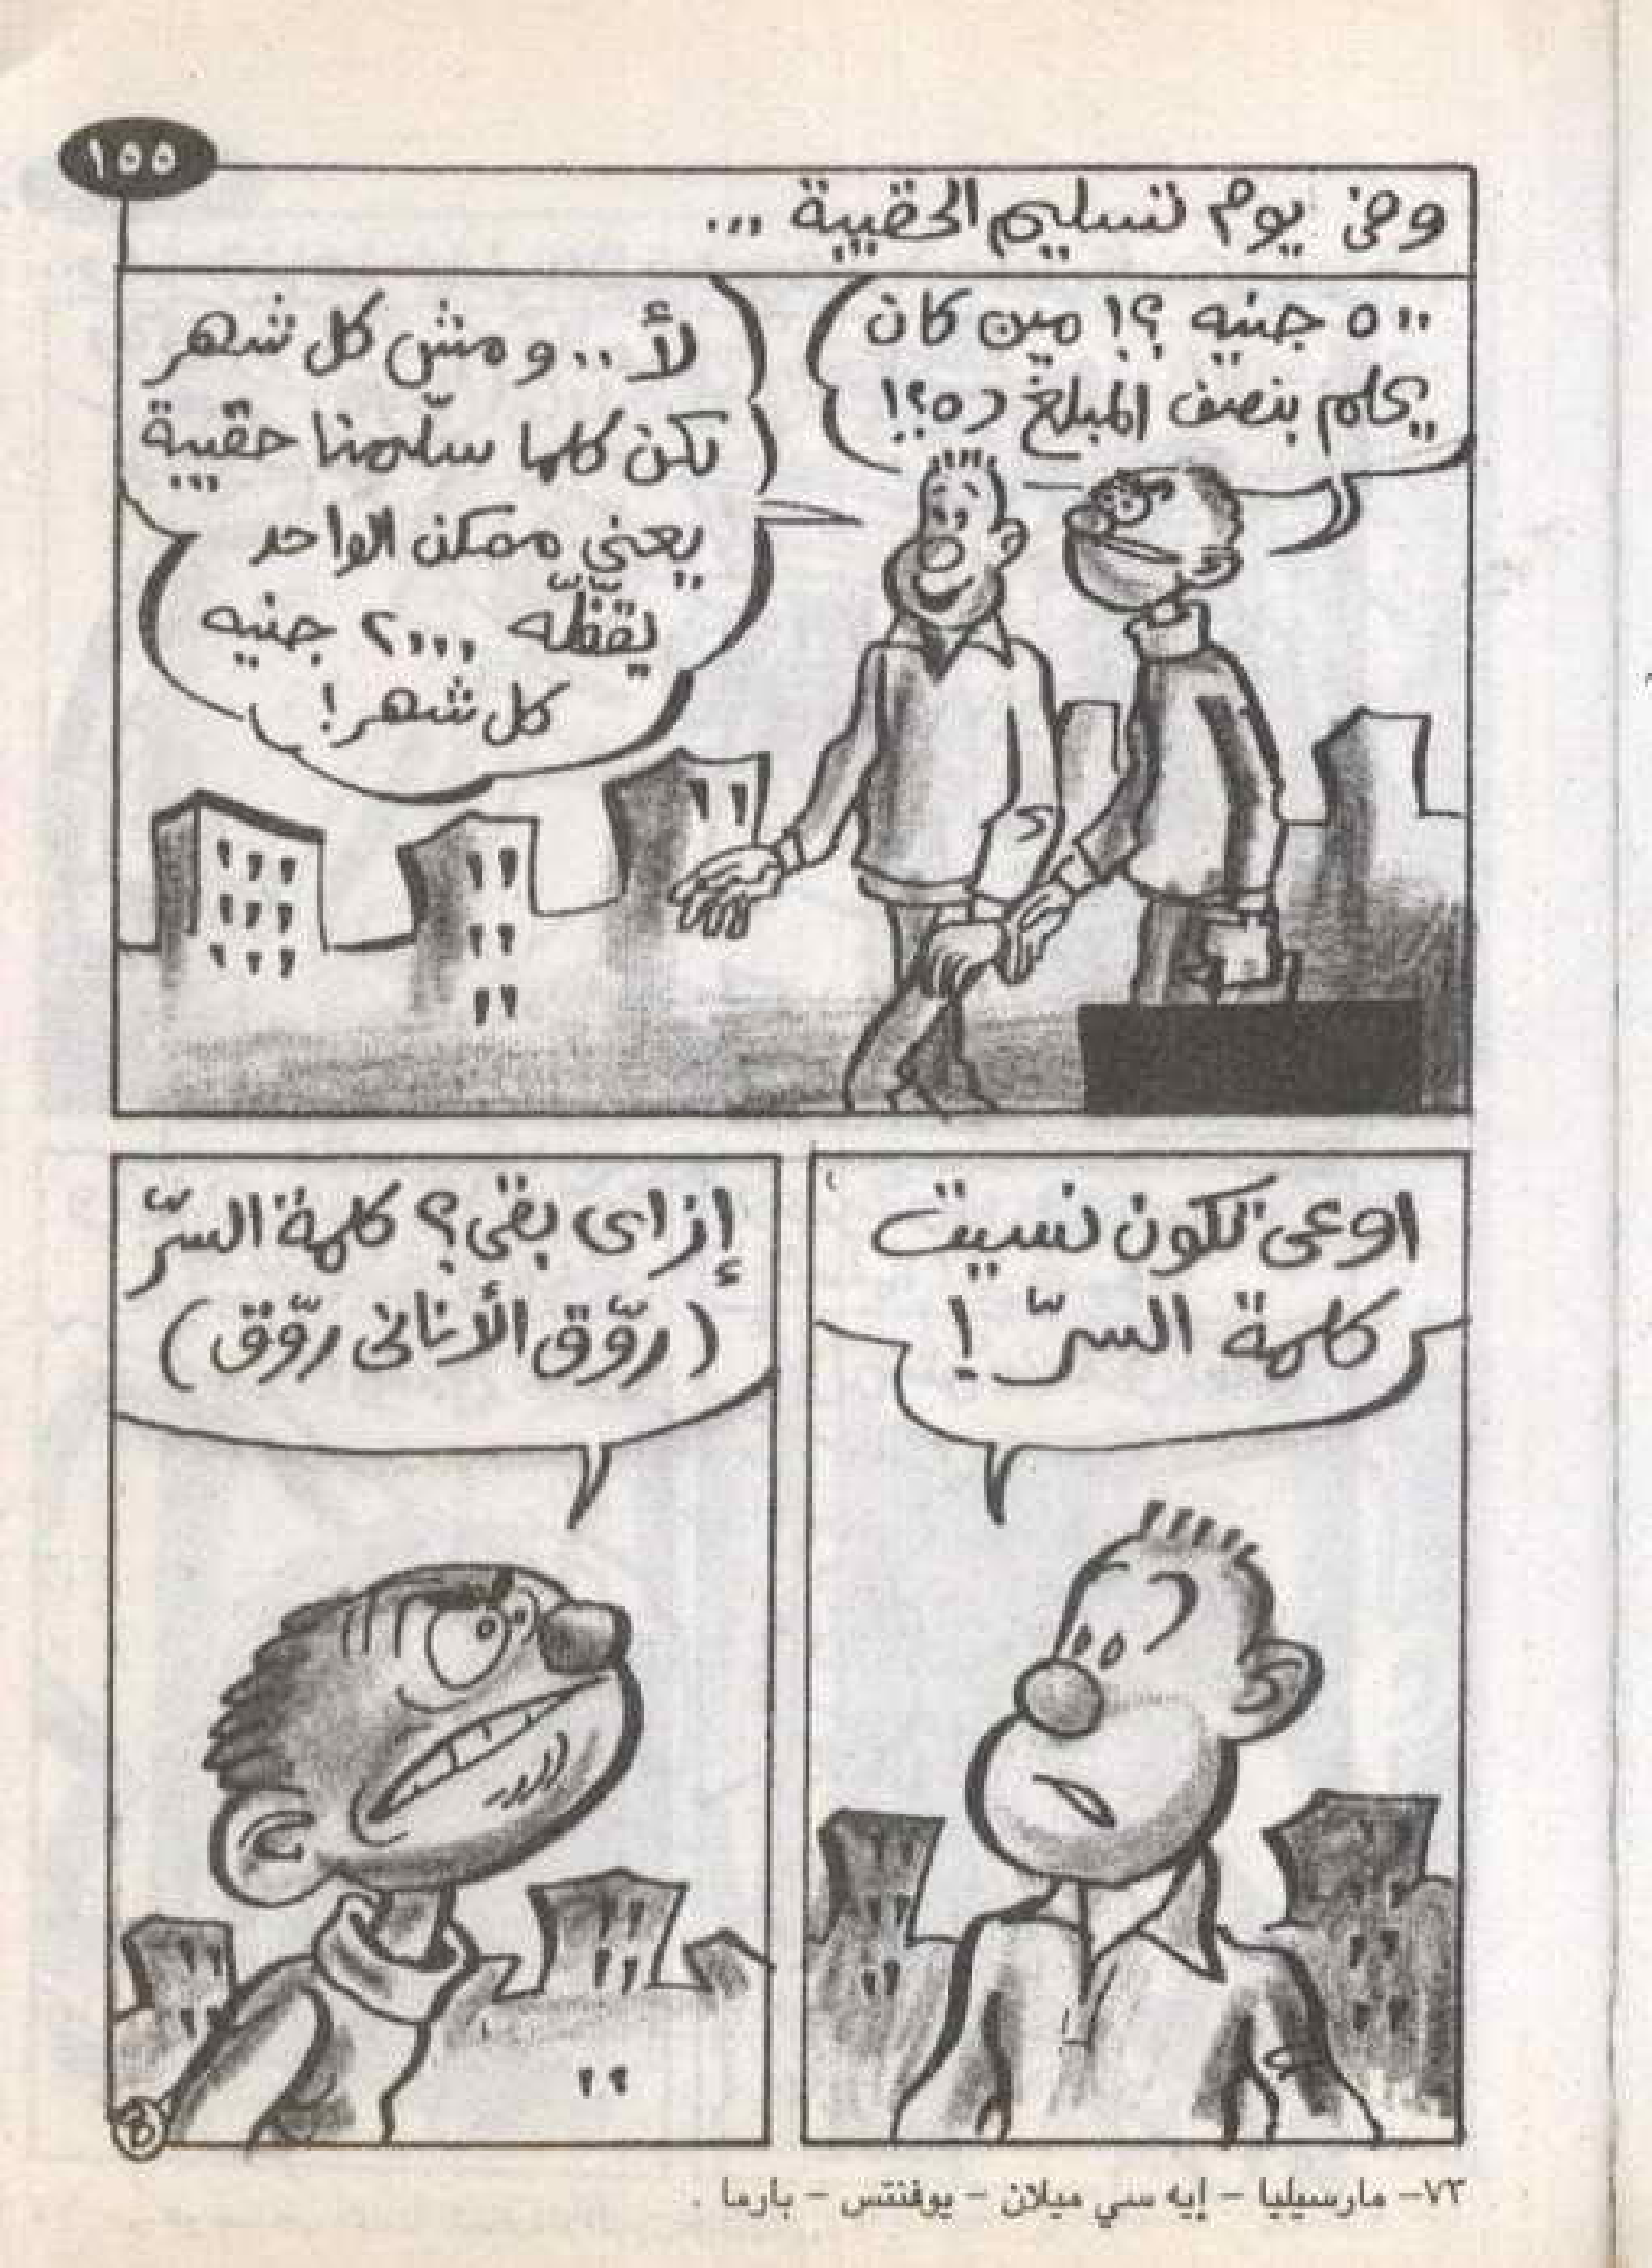 ١٥٥
وفى يوم تسليم الحقيبة ...
٥٠٠ جنيه ؟! مين كان
يحلم بنصف المبلغ ده؟!
لأ .. ومش كل شهر
لكن كلما سلّمنا حقيبة
يعنى ممكن الواحد
يقفّله ٢٠٠٠ جنيه
كل شهر!
اوعى تكون نسيت
كلمة السرّ !
إزاى بقى؟ كلمة السرّ
(روّق الأنانى روّق)
٧٣- مارسيليا - إيه سي ميلان - يوفنتس - بارما .